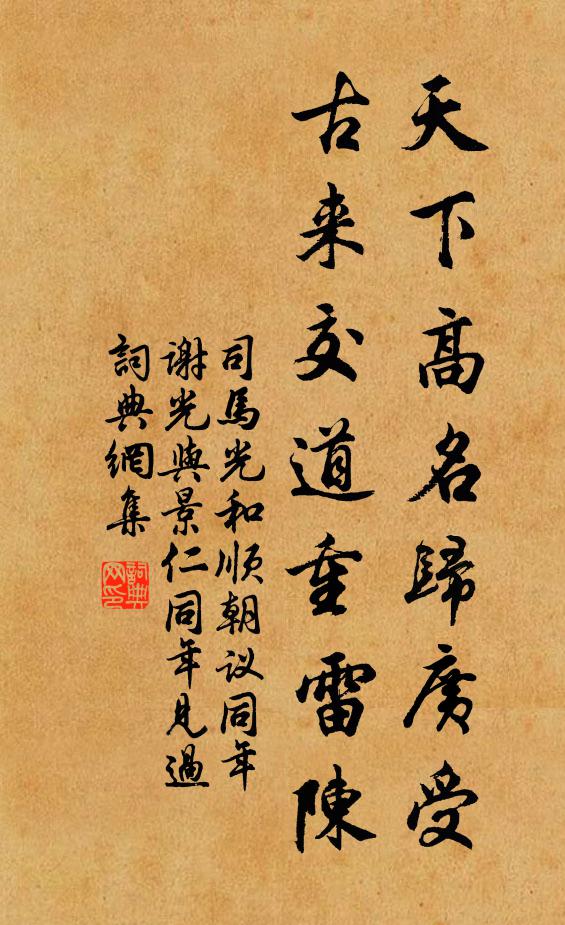 天下高名歸廣受
古来交道重雷陳
司馬光和順朝议同年
謝光與景仁同年見過
詞典網集
詞典网印